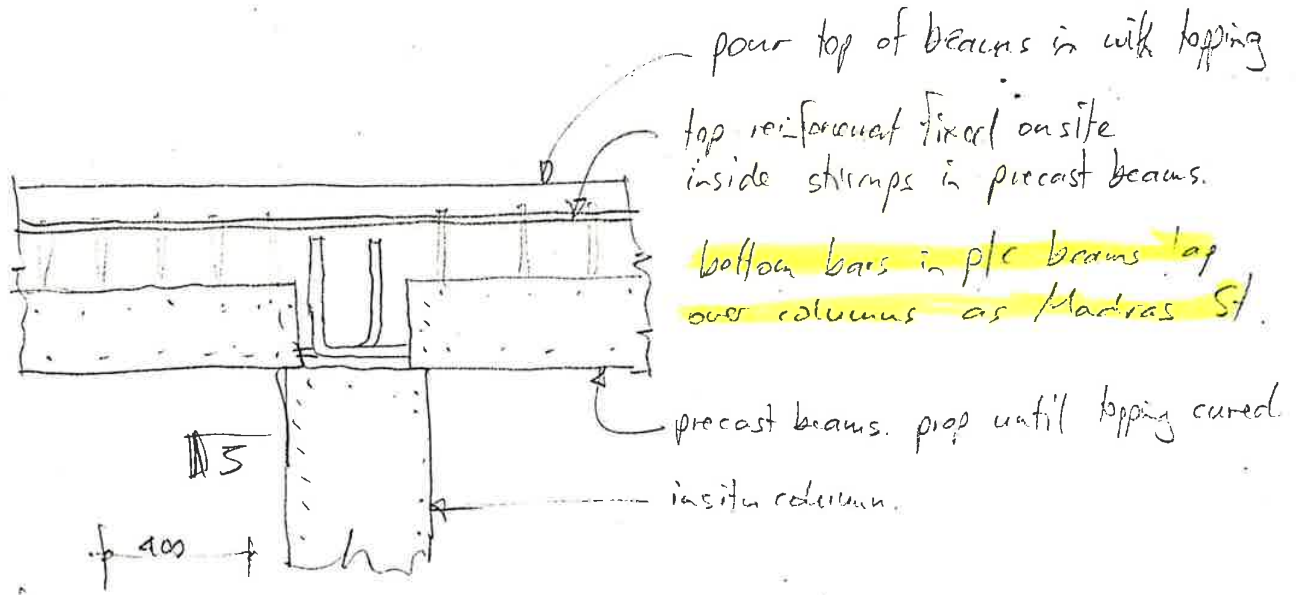 pour top of beams in with topping
top reinforcement fixed on site
inside stirrups in precast beams.
bottom bars in p/c beams lap
over columns as Madras St.
precast beams. prop until topping cured.
insitu column.
400